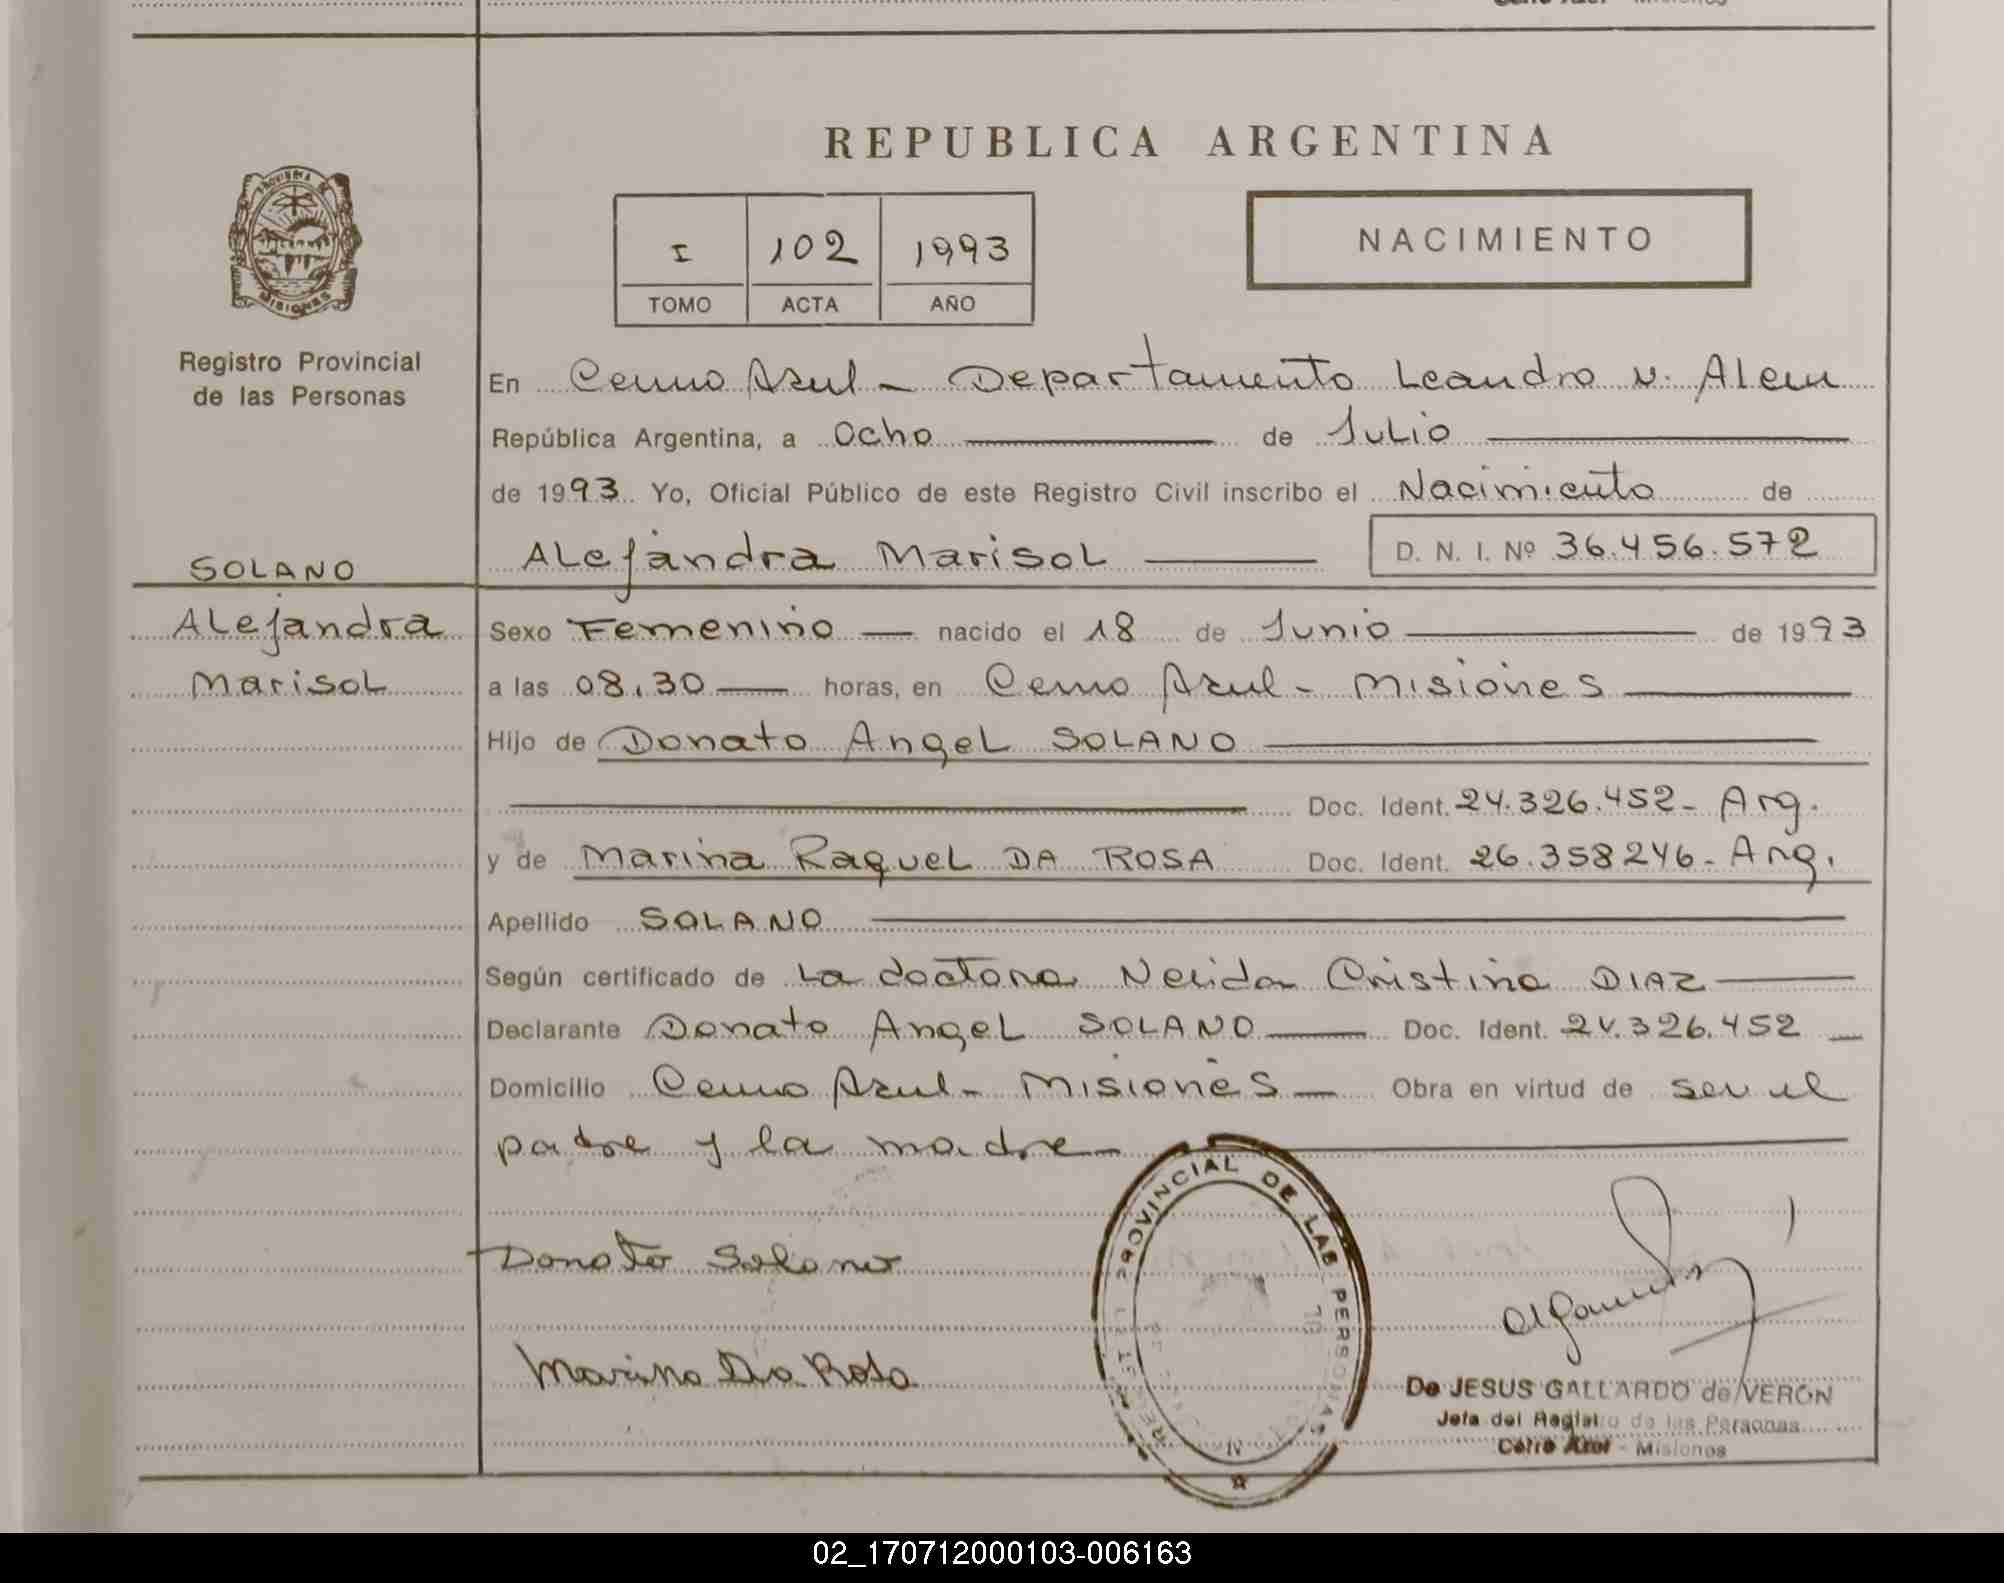 REPUBLICA ARGENTINA
PROVINCIA DE
MISIONES
Registro Provincial
de las Personas
I 102 1993
TOMO ACTA AÑO
NACIMIENTO
En Cerro Azul - Departamento Leandro N. Alem
República Argentina, a Ocho de Julio
de 1993 Yo, Oficial Público de este Registro Civil inscribo el Nacimiento de
Alejandra Marisol D. N. I. Nº 36.456.572
SOLANO
Alejandra
Marisol
Sexo Femenino nacido el 18 de Junio de 1993
a las 08.30 horas, en Cerro Azul - Misiones
Hijo de Donato Angel SOLANO
Doc. Ident. 24.326.452 - Arg.
y de Marina Raquel DA ROSA Doc. Ident. 26.358246 - Arg.
Apellido SOLANO
Según certificado de La doctora Nerida Cristina DIAZ
Declarante Donato Angel SOLANO Doc. Ident. 24.326.452
Domicilio Cerro Azul - Misiones Obra en virtud de ser el
padre y la madre
Donato Solano
Marina Da Rosa
PROVINCIAL DE LAS PERSONAS
De JESUS GALLARDO de VERON
Jefa del Registro de las Personas
Cerro Azul - Misiones
02_170712000103-006163